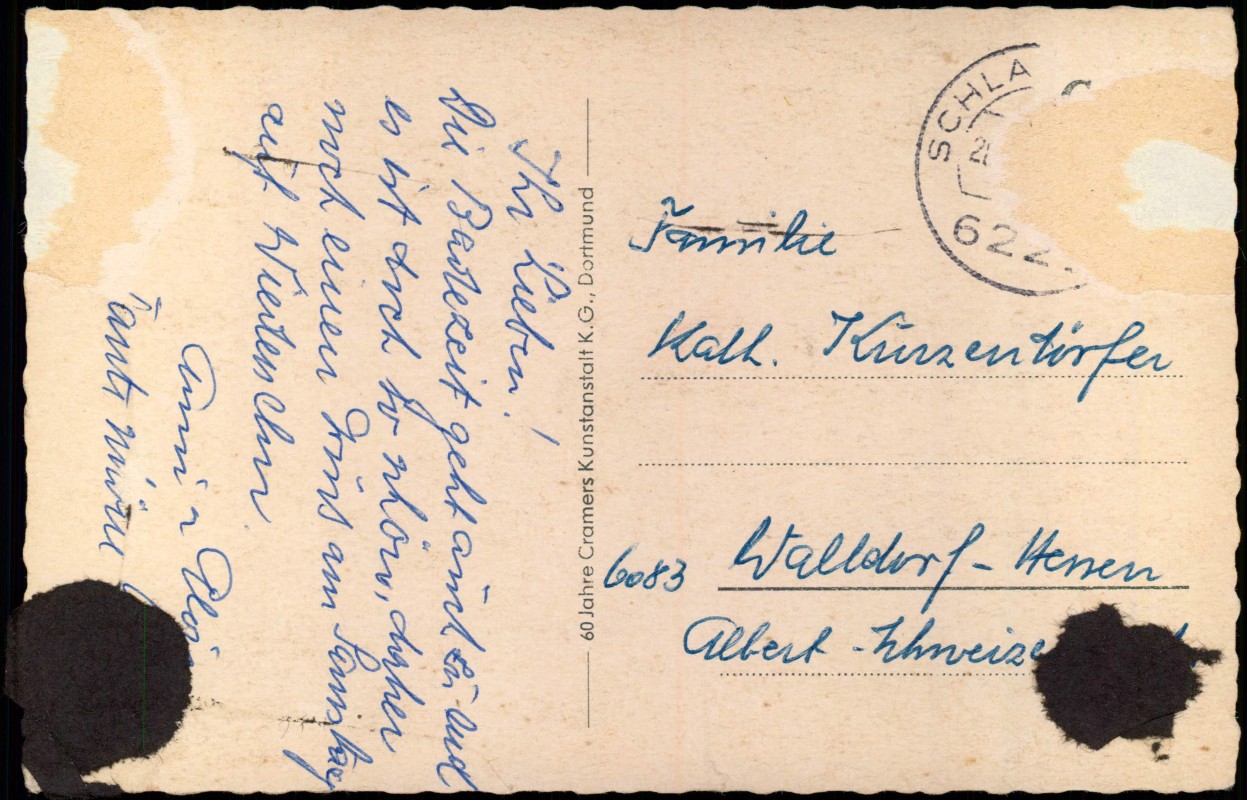 Ihr Lieben!
Die Badezeit geht zu und
es ist doch so schön, daher
noch einen Grus am Samstag
auf Wiedersehn
Anni u
Tante
60 Jahre Cramers Kunstanstalt K.G., Dortmund
SCHLA
622
Familie
Kath. Kurzendörfer
6083 Walldorf - Hessen
Albert - Schweize